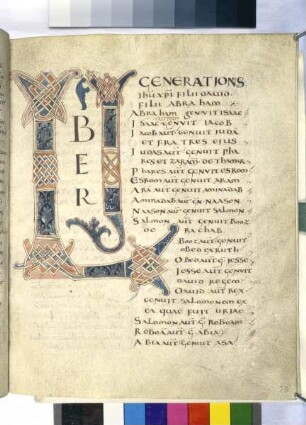 LIBER
GENERATIONIS
IHU XPI FILII DAUID
FILII ABRAHAM
ABRAHAM GENUIT ISAAC
ISAAC GENUIT IACOB
IACOB AUT GENUIT IUDA
ET FRATRES EIUS
IUDAS AUT GENUIT PHA
RES ET ZARAM DE THAMAR
PHARES AUT GENUIT ESROM
ESROM AUT GENUIT ARAM
ARA AUT GENUIT AMINADAB
AMINADAB AUT GN NAASON
NAASON AUT GENUIT SALMON
SALMON AUT GENUIT BOOZ
DE RACHAB
BOOZ AUT GENUIT
OBED EX RUTH
OBED AUT G IESSE
IESSE AUT GENUIT
DAUID REGEM
DAUID AUT REX
GENUIT SALOMONEM EX
EA QUAE FUIT URIAE
SALOMON AUT G ROBOAM
ROBOA AUT G ABIA
ABIA AUT GENUIT ASA